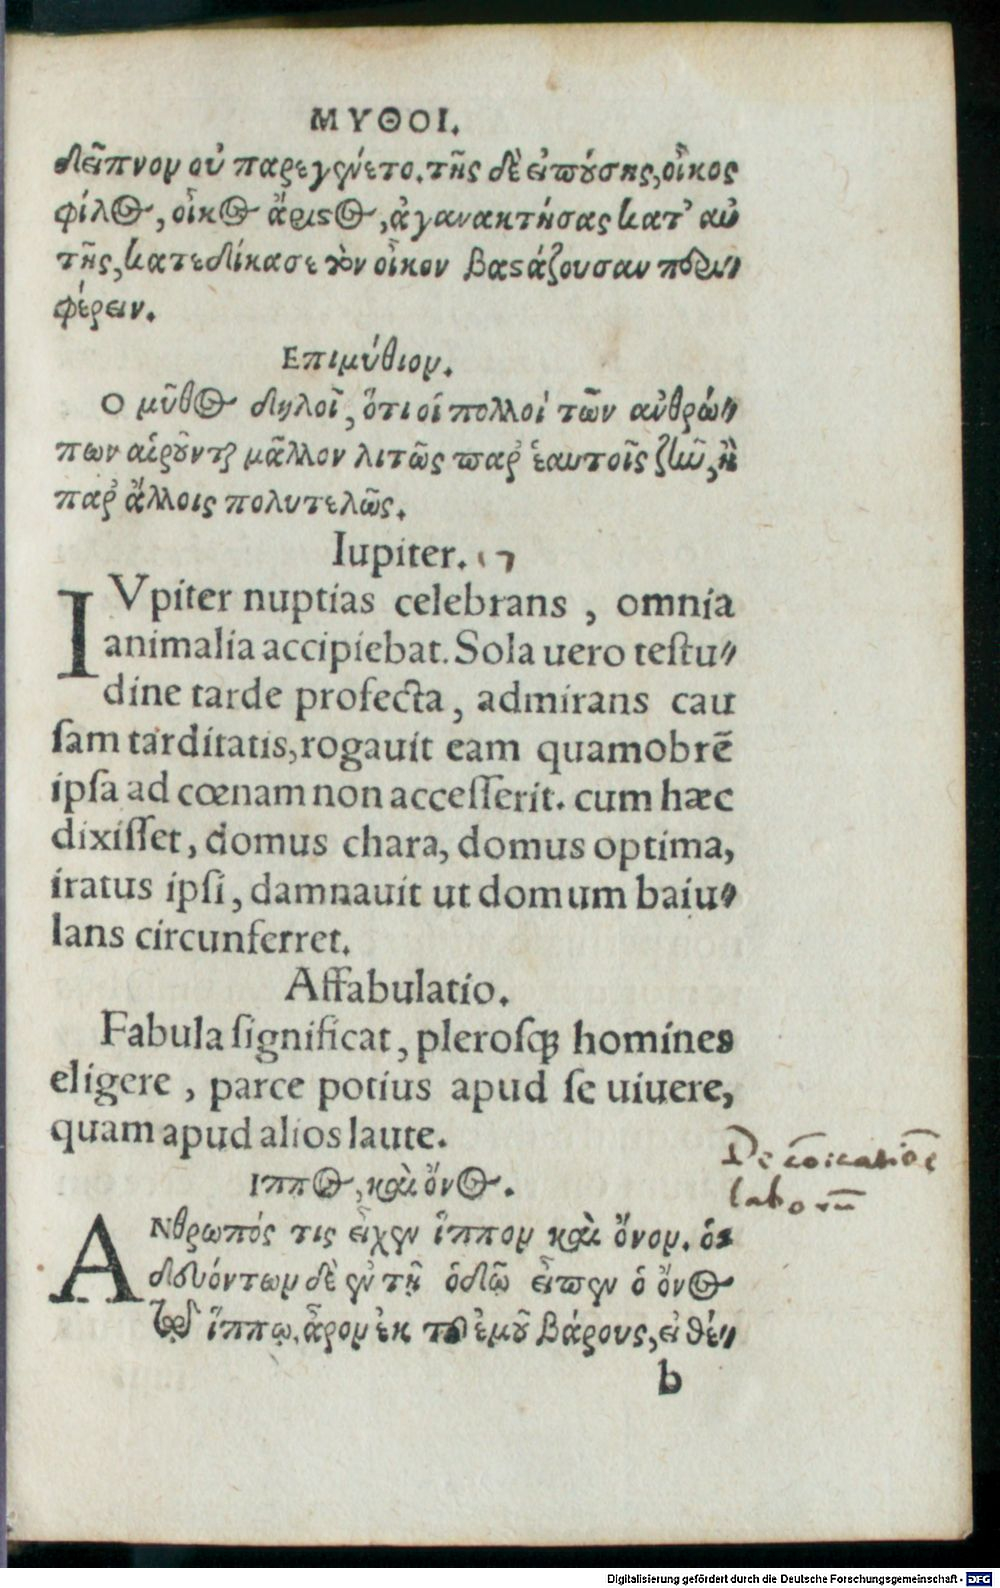 ΜΥΘΟΙ.
δεῖπνον οὐ παρεγένετο. τῆς δὲ εἰπούσης, οἶκος
φίλος, οἶκος ἄριστος, ἀγανακτήσας κατ' αὐ
τῆς, κατεδίκασε τὸν οἶκον βαστάζουσαν περι-
φέρειν.
Επιμύθιον.
Ο μῦθος δηλοῖ, ὅτι οἱ πολλοὶ τῶν ἀνθρώ-
πων αἱροῦνται μᾶλλον λιτῶς παρ' ἑαυτοῖς ζῆν, ἢ
παρ' ἄλλοις πολυτελῶς.
Iupiter. 17
IVpiter nuptias celebrans , omnia
animalia accipiebat. Sola uero testu-
dine tarde profecta, admirans cau
sam tarditatis, rogauit eam quamobrẽ
ipsa ad cœnam non accesserit. cum hæc
dixisset, domus chara, domus optima,
iratus ipsi, damnauit ut domum baiu-
lans circunferret.
Affabulatio.
Fabula significat, plerosq; homines
eligere , parce potius apud se uiuere,
quam apud alios laute.
De cõicatiõe
laborũ
Ιππος, καὶ ὄνος.
ΑΝθρωπός τις εἶχεν ἵππον καὶ ὄνον. ὁ-
δευόντων δὲ ἐν τῇ ὁδῷ εἶπεν ὁ ὄνος
τῷ ἵππῳ, ἆρον ἐκ τοῦ ἐμοῦ βάρους, εἰ θέ-
b
Digitalisierung gefördert durch die Deutsche Forschungsgemeinschaft - DFG